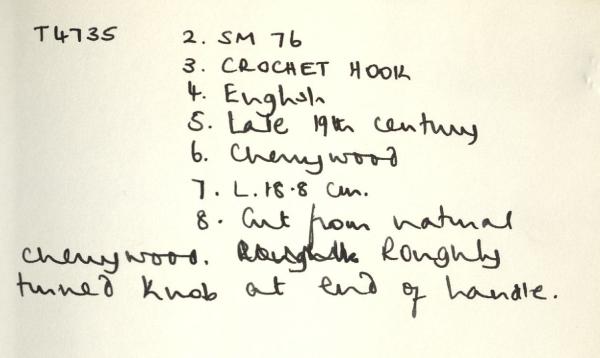 T4735 2. SM 76
3. CROCHET HOOK
4. English
5. Late 19th century
6. Cherrywood
7. L. 18.8 cm.
8. Cut from natural
cherrywood. Roughly
turned knob at end of handle.